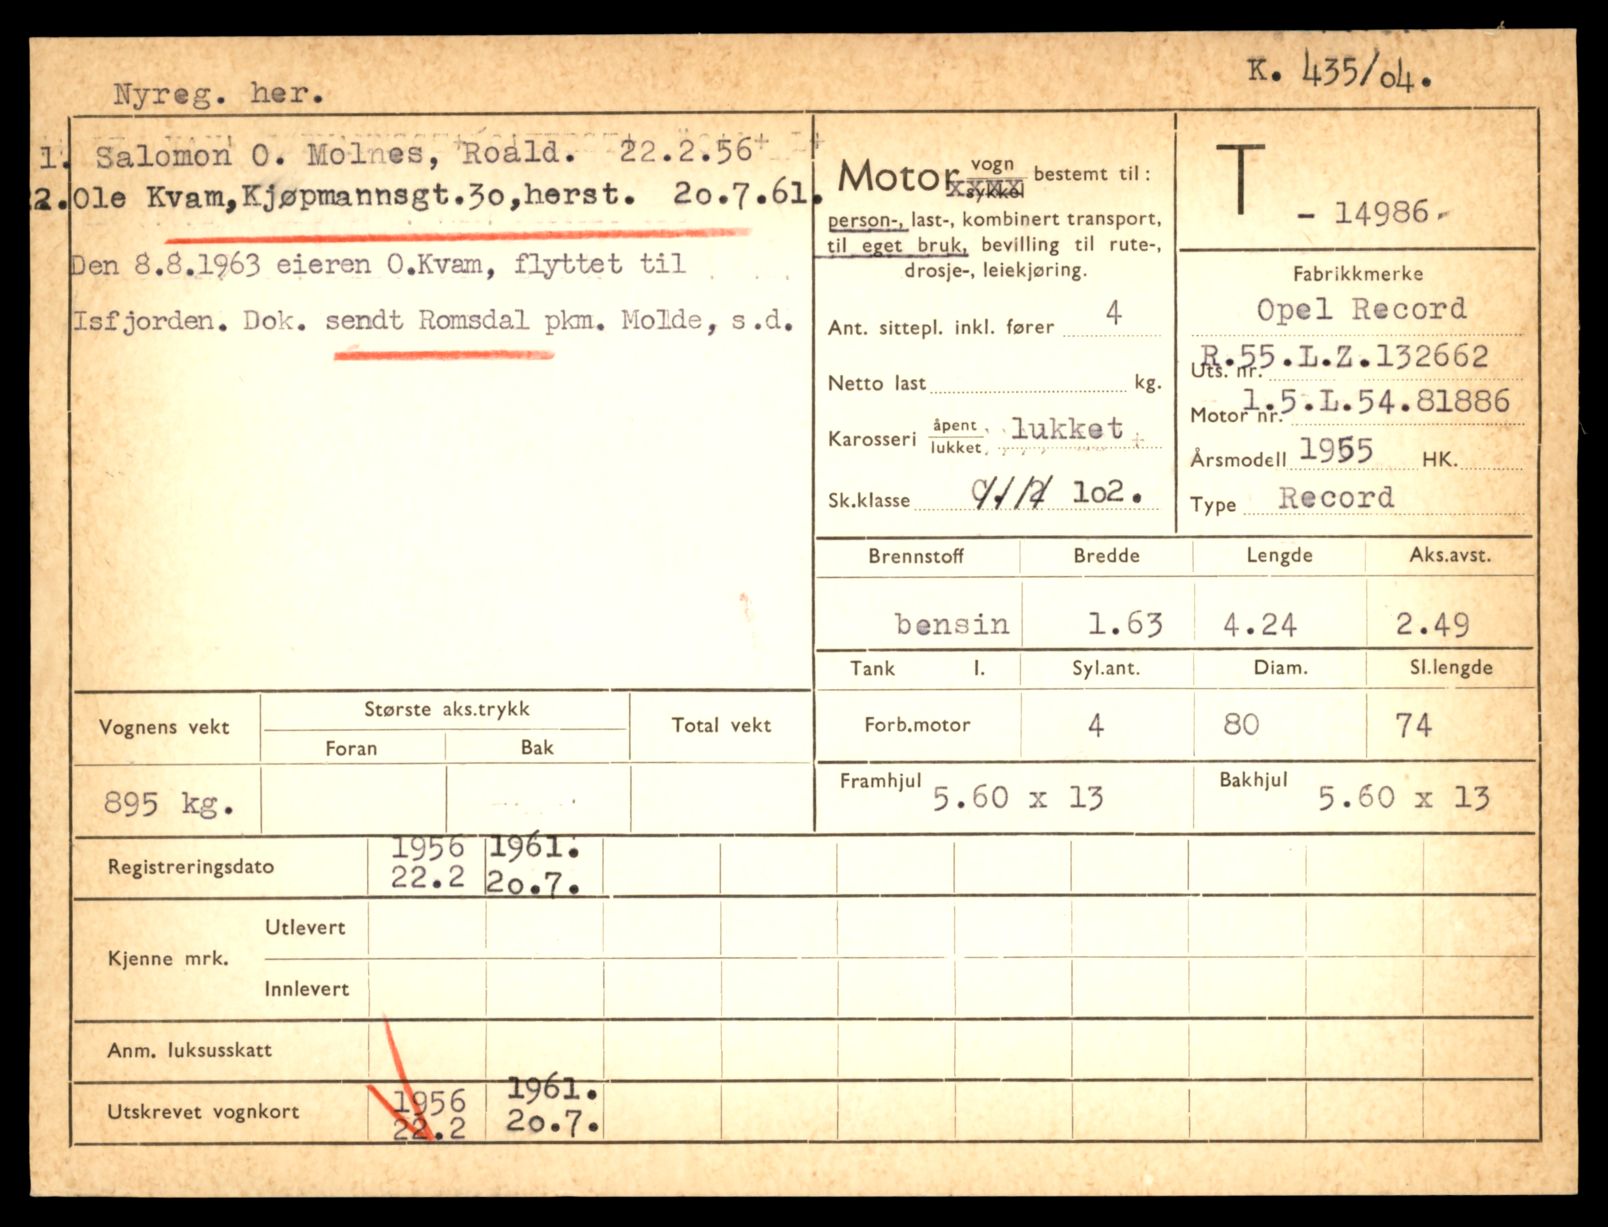 K. 435/04.
Nyreg. her.
1. Salomon O. Molnes, Roald. 22.2.56
2. Ole Kvam, Kjøpmannsgt.30, herst. 20.7.61.
Den 8.8.1963 eieren O.Kvam, flyttet til
Isfjorden. Dok. sendt Romsdal pkm. Molde, s.d.
Motor vogn sykkel bestemt til:
person-, last-, kombinert transport,
til eget bruk, bevilling til rute-,
drosje-, leiekjøring.
Ant. sittepl. inkl. fører 4
Netto last kg.
Karosseri åpent lukket lukket
Sk.klasse 102.
T - 14986
Fabrikkmerke
Opel Record
Uts. nr. R.55.L.Z.132662
Motor nr. 1.5.L.54.81886
Årsmodell 1955 HK.
Type Record
Brennstoff Bredde Lengde Aks.avst.
bensin 1.63 4.24 2.49
Tank l. Syl.ant. Diam. Sl.lengde
Forb.motor 4 80 74
Framhjul 5.60 x 13 Bakhjul 5.60 x 13
Vognens vekt Største aks.trykk Total vekt
Foran Bak
895 kg.
Registreringsdato 1956 1961.
22.2 20.7.
Kjenne mrk. Utlevert
Innlevert
Anm. luksusskatt
Utskrevet vognkort 1956 1961.
22.2 20.7.